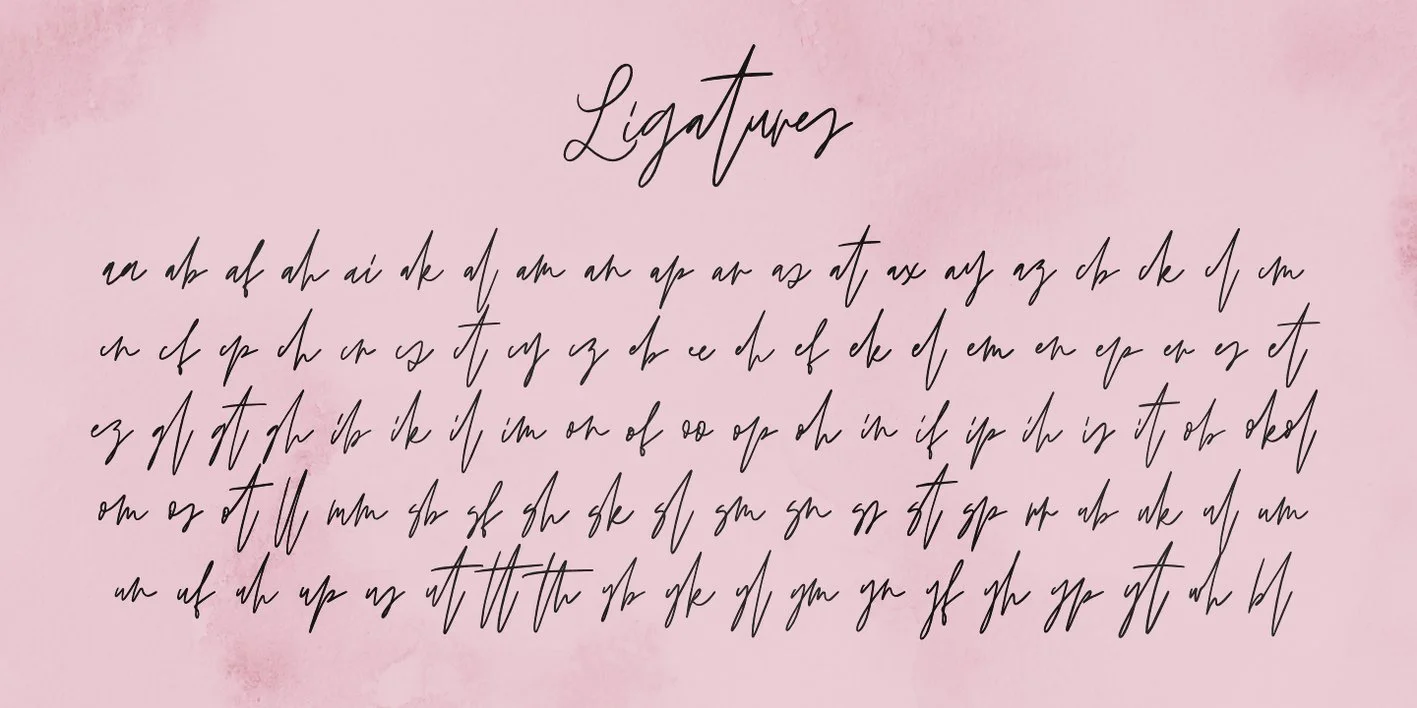 Ligatures
aa ab af ah ai ak al am an ap ar as at ax ay az cb ck cl cm
cn cf cp ch cr cs ct cy cz eb ee eh ef ek el em en ep er es et
ez gl gt gh ib ik il im on of oo op oh in if ip ih is it ob ok ol
om os ot ll mm sb sf sh sk sl sm sn ss st sp rr ub uk ul um
un uf uh up us ut tt th yb yk yl ym yn yf yh yp yt wh bl